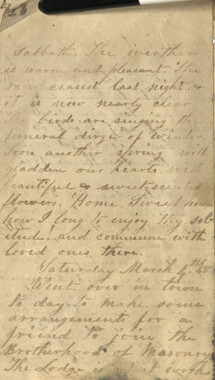 26
Sabbath. The weather
is warm and pleasant. The
rain ceased last night, &
it is now nearly clear.
The birds are singing the
funeral dirge of winter.
Soon another spring will
gladden our hearts with
beautiful & sweet scented
flowers. Home, Sweet home
how I long to enjoy thy sol-
itude! and commune with
loved ones there.
Saturday March 4th
Went over in town
to day to make some
arrangements for a
friend to join the
Brotherhood of Masonry
The Lodge is